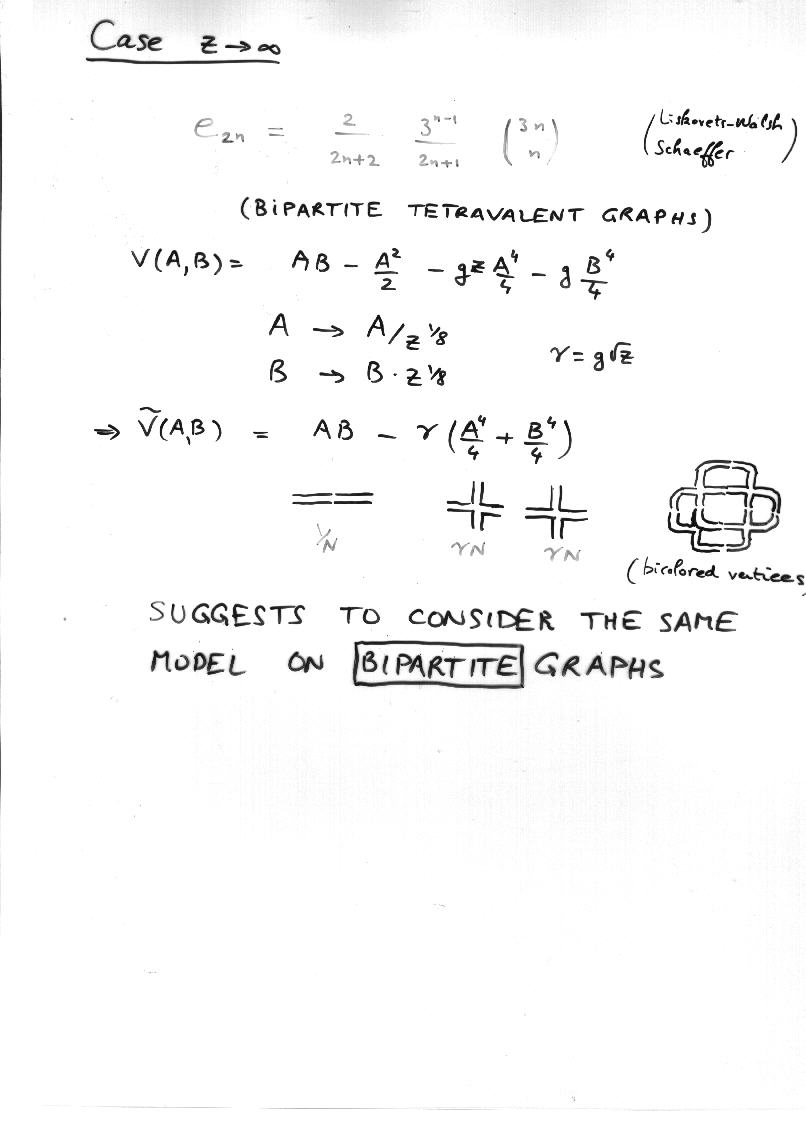 Case z → ∞
e_{2n} = \frac{2}{2n+2} \frac{3^{n-1}}{2n+1} \binom{3n}{n} (Liskovets-Walsh
Schaeffer)
(BiPARTITE TETRAVALENT GRAPHS)
V(A,B) = AB - \frac{A^2}{2} - gz \frac{A^4}{4} - g \frac{B^4}{4}
A → A/z^{1/8}
B → B·z^{1/8} γ = g√z
⇒ \tilde{V}(A,B) = AB - γ (\frac{A^4}{4} + \frac{B^4}{4})
1/N γN γN
(bicolored vertices
SUGGESTS TO CONSIDER THE SAME
MODEL ON BIPARTITE GRAPHS